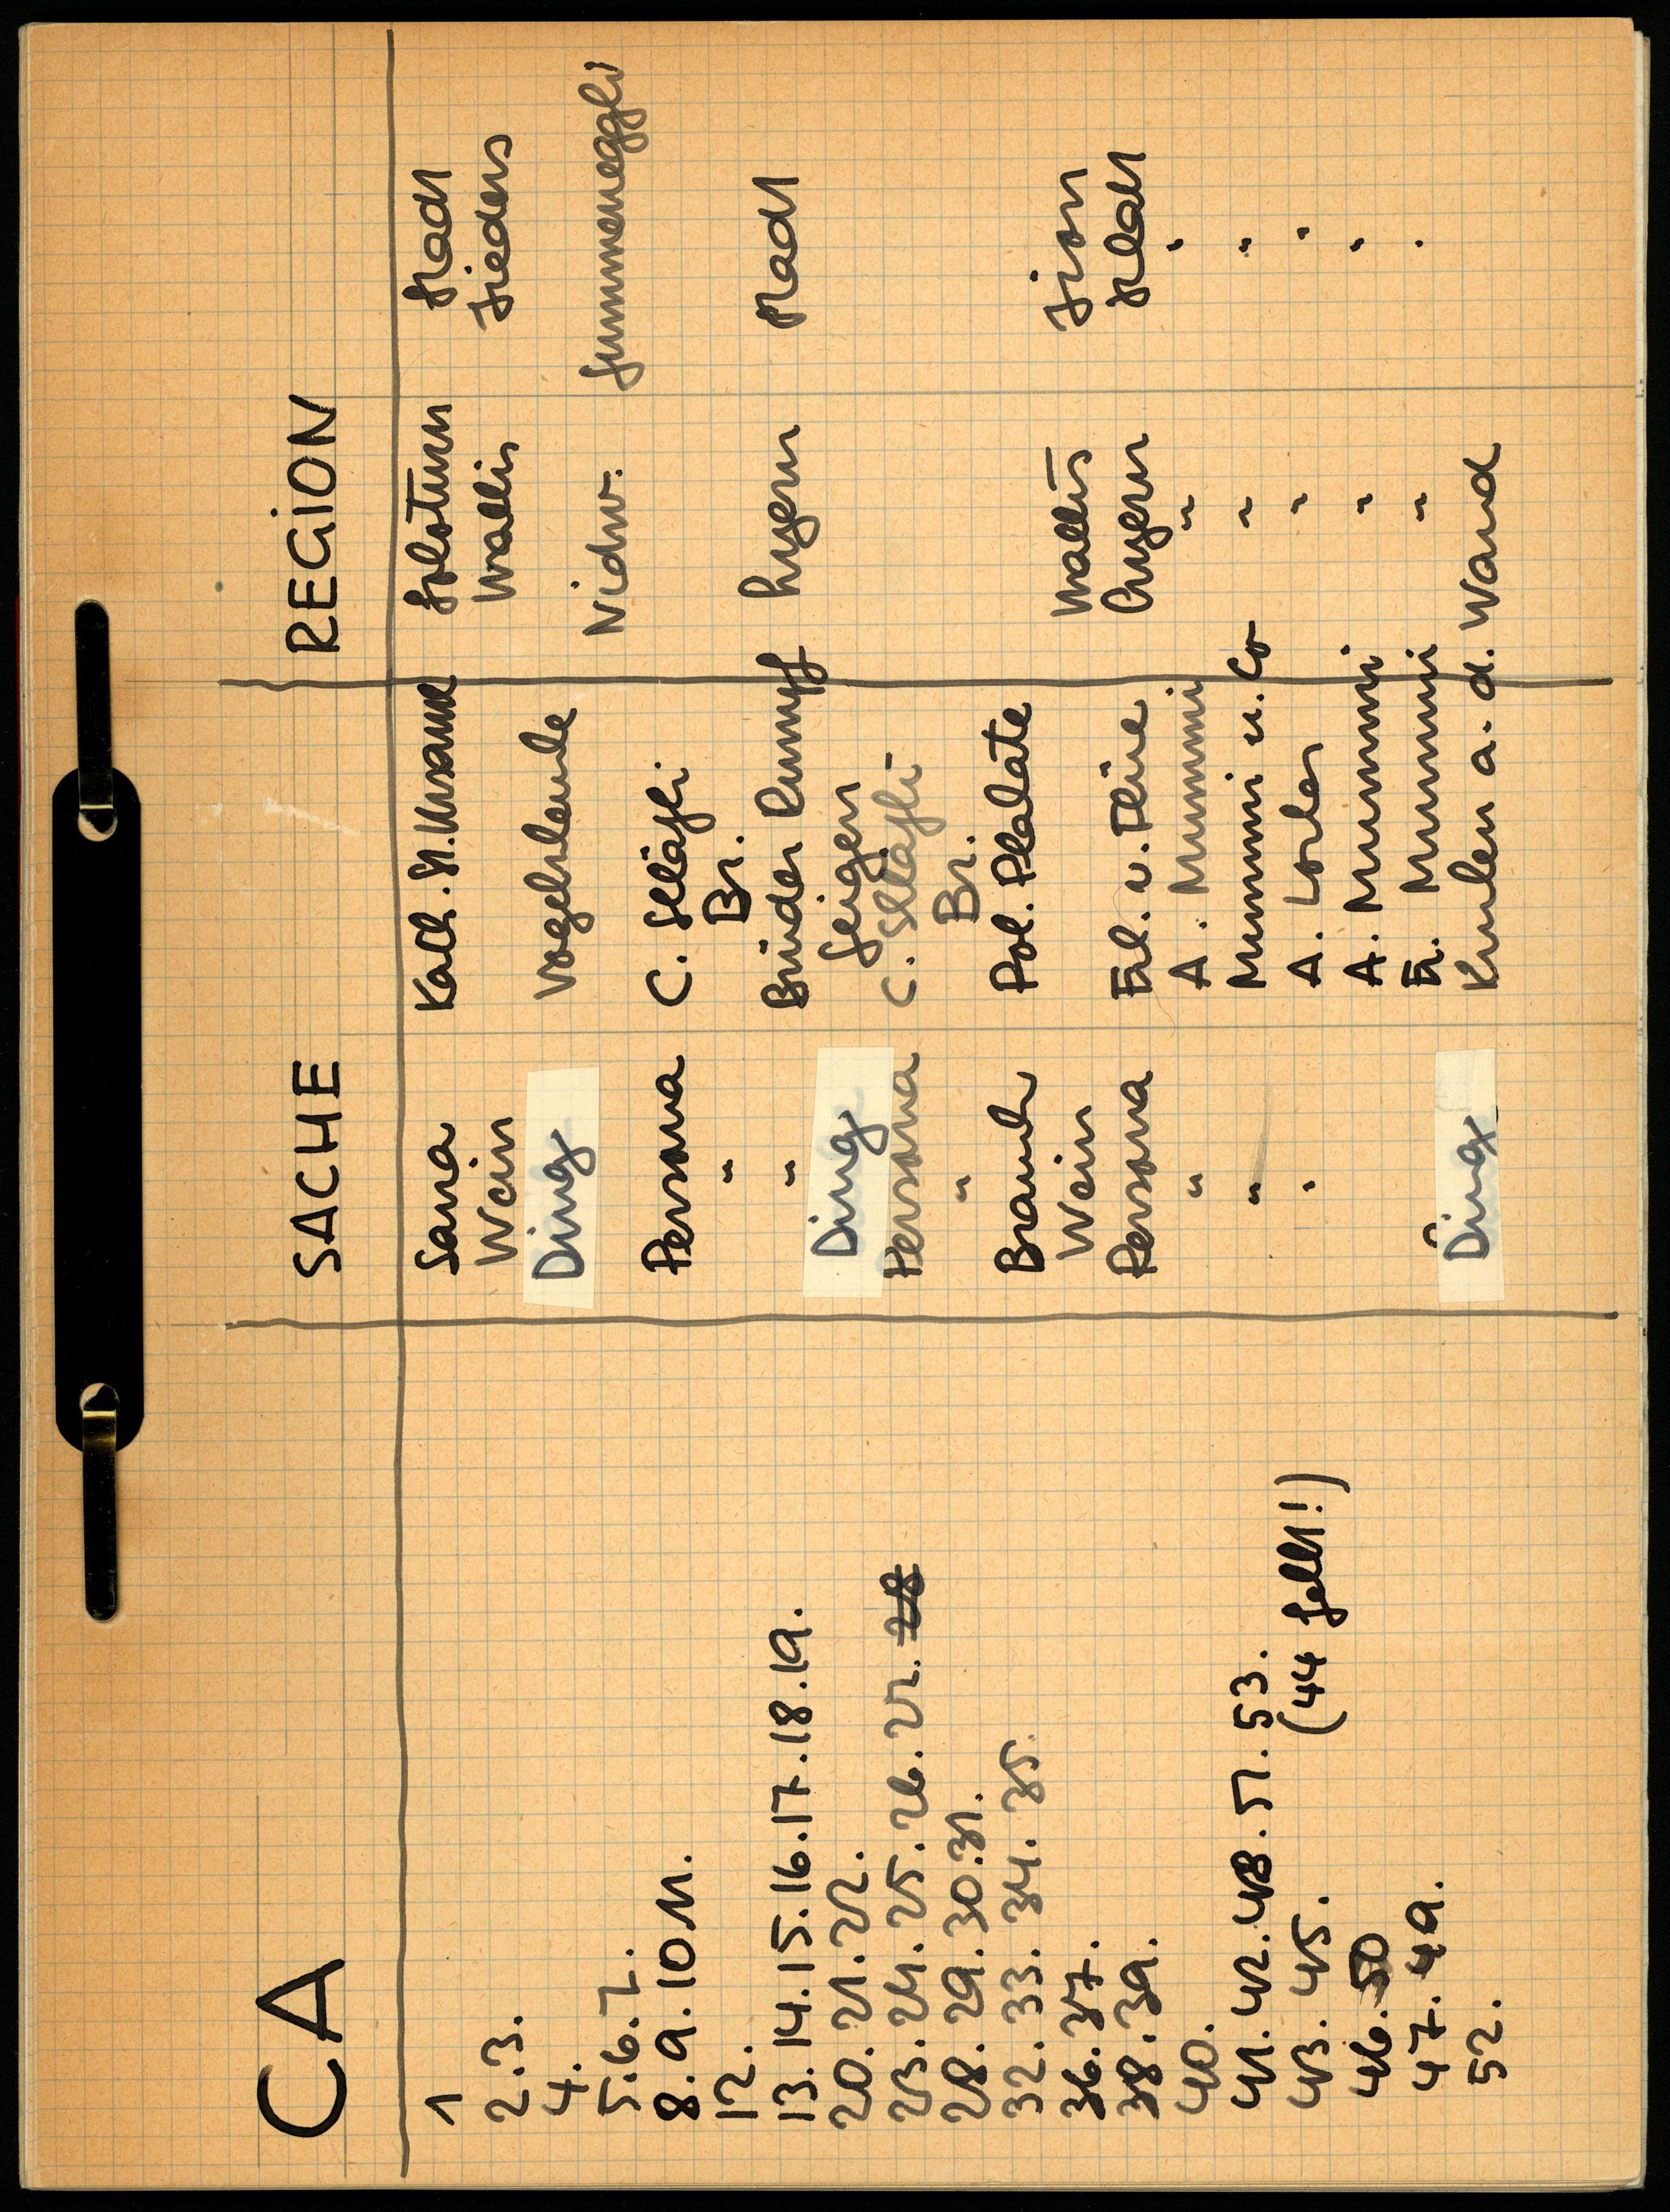 CA SACHE REGION
1 Sama Kath. St. Ursanne Solothurn Stadt
2.3. Wein Wallis Siders
4. Ding Vogelscheuche
5.6.7. Nidw. Emmeneggli
8.9.10 11. Persona C. Stläfli
12. " Br.
13.14.15.16.17.18.19. " Brüder Rumpf Luzern Stadt
20.21.22. Ding Geigen
23.24.25.26.27. 28 Persona C. Släfli
28.29.30.31. " Br.
32.33.34.35. Brauch Pol. Plakate
36.37. Wein Wallis Sion
38.39. Persona Luzern Stadt
40. " A. Mummi " "
41.42.48.51.53. " Mummi u. Co " "
43.45. (44 fehlt!) " A. " "
46.50 A. Mummi " "
47.49. Fr. Mummi " "
52. Ding a. d. Wand